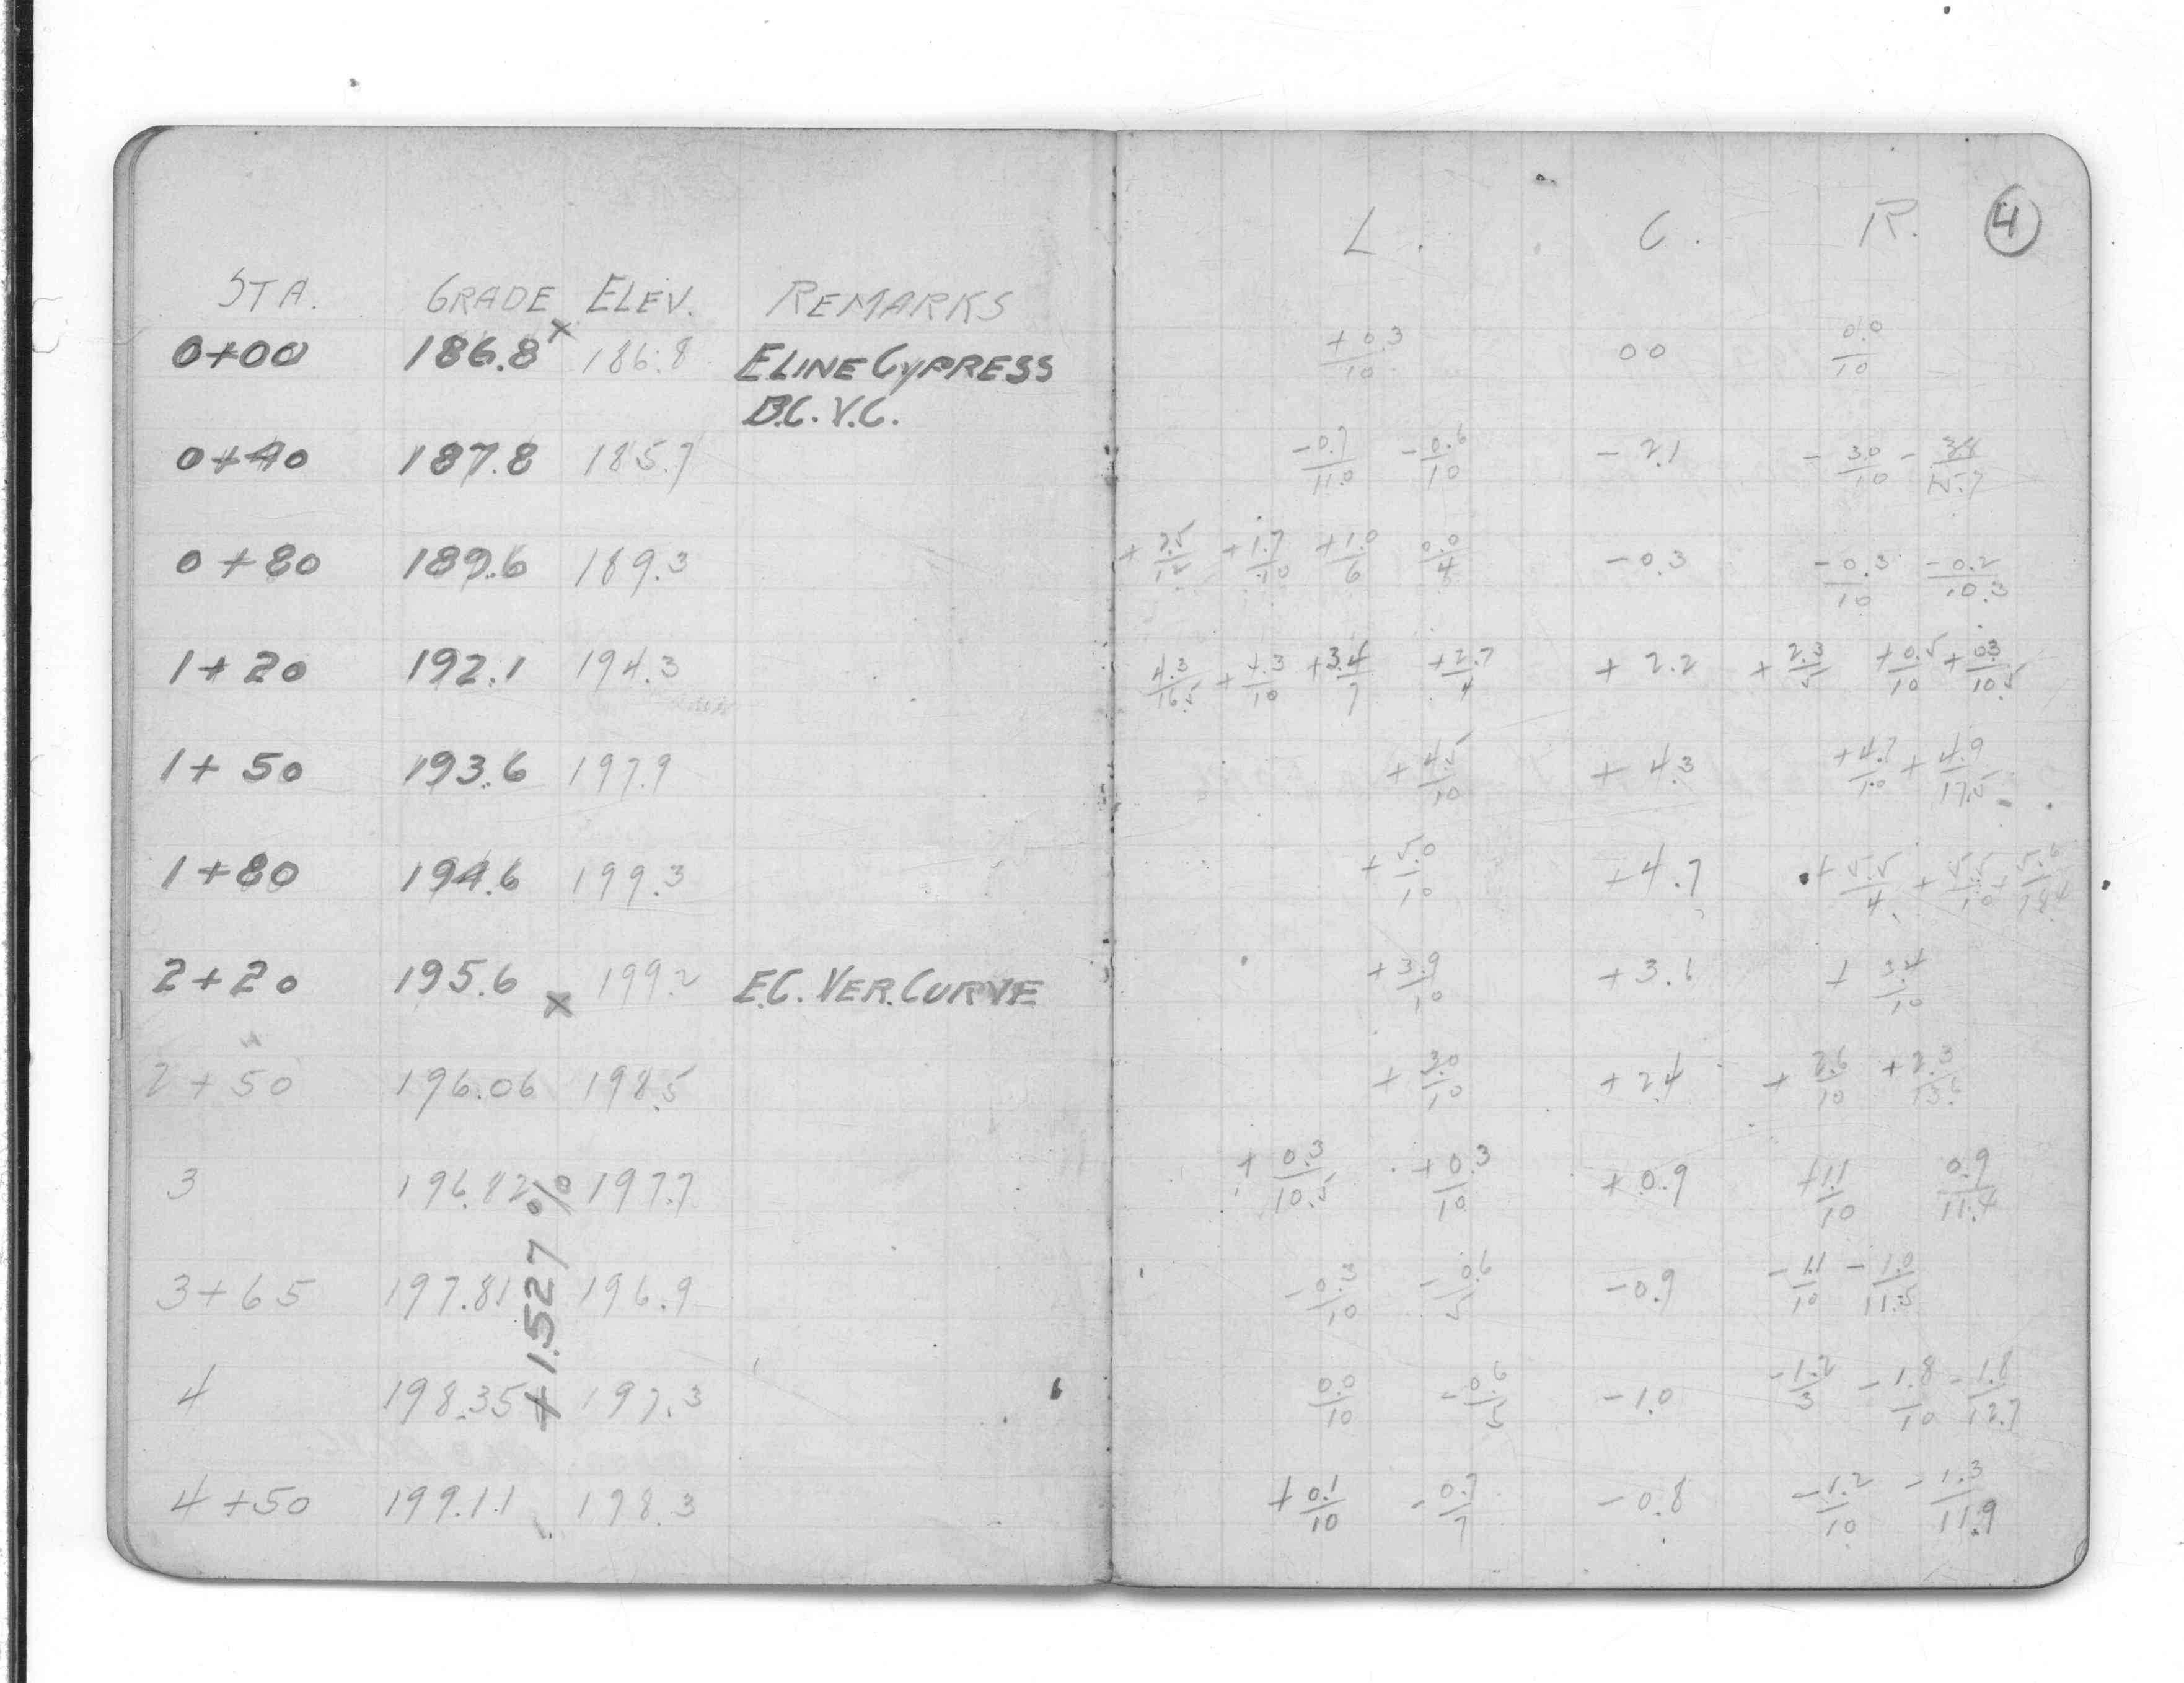 L. C. R. 4
STA. GRADE ELEV. REMARKS
0+00 186.8 x 186.8 E LINE CYPRESS +0.3/10 00 0.0/10
B.C. V.C.
0+40 187.8 185.7 -0.7/11.0 -0.6/10 -2.1 -3.0/10
0+80 189.6 189.3 +1.7/10 +1.0/6 0.0/4 -0.3 -0.3/10 -0.2/10.3
1+20 192.1 194.3 4.3/16.5 +4.3/10 +3.4/7 +2.7/4 +2.2 +2.3/5 +0.5/10 +0.3/10.5
1+50 193.6 197.9 +4.5/10 +4.3 +4.7/10 +4.9/17.5
1+80 194.6 199.3 +5.0/10 +4.7 +5.5/4 +5.5/10
2+20 195.6 x 199.2 E.C. VER. CURVE +3.9/10 +3.6 +3.4/10
2+50 196.06 198.5 +3.0/10 +2.4 +2.6/10 +2.3/13.6
3 196.82 197.7 +0.3/10.5 +0.3/10 +0.9 +1.1/10 0.9/11.4
+1.527%
3+65 197.81 196.9 -0.3/10 -0.6/5 -0.9 -1.1/10 -1.0/11.5
4 198.35 197.3 0.0/10 -0.6/5 -1.0 -1.2/3 -1.8/10 -1.8/12.7
4+50 199.11 198.3 +0.1/10 -0.7/7 -0.8 -1.2/10 -1.3/11.9